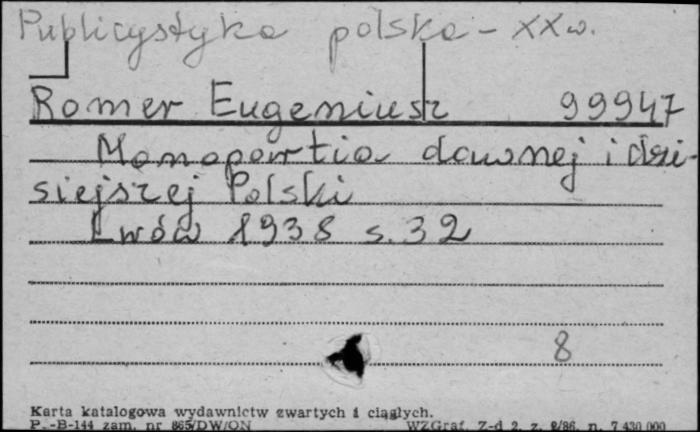 Publicystyka polska - XX w.
Romer Eugeniusz 99947
Monopartia dawnej i dzi-
siejszej Polski
Lwów 1938 s. 32
8
Karta katalogowa wydawnictw zwartych i ciągłych.
P.-B-144 zam. nr 865/DW/ON WZGraf. Z-d 2, z. 2/86, n. 7 430 000